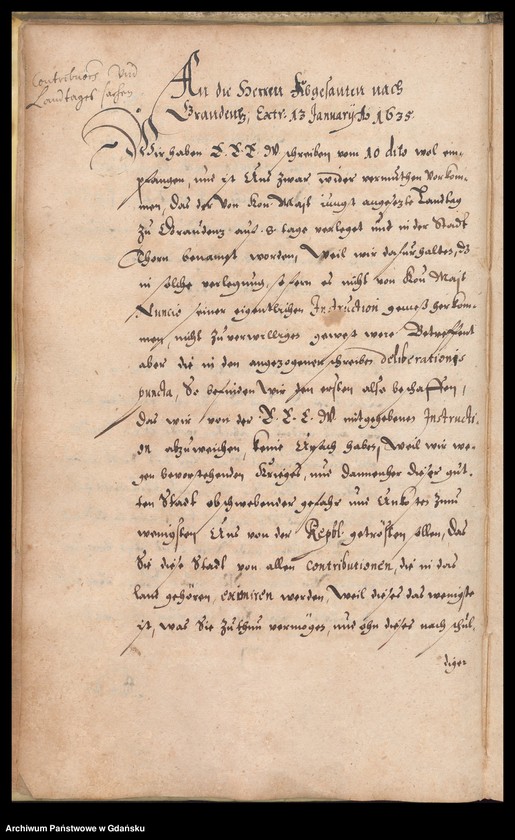 Contributions Und
Landtages sachen
An die Herren Abgesanten nach
Graudentz, Extr. 13 January Ao 1635.
Wir haben E. E. E. W schreiben vom 10 dito wol em-
pfangen, und ist Uns zwar wider vermuthen vorkom-
men, das der von Kön. Mayt iüngst angesezte Landtag
zu Graudenz auf 8 tage verleget und in der Stadt
Thorn benamet worden, Weil wir dafür halten, dz
in solche verlegung, sofern es nicht von Kön Mayt
Nuncio seiner eigentlichen Instruction gemeß herkom-
men, nicht zuverwilligen gewest were. Betreffent
aber die in den angezogenen schreiben deliberations
puncta, So befinden Wir den ersten also beschaffen,
das wir von der E. E. E. W mitgegebenen Instructi-
on abzuweichen, keine Ursach haben, Weil wir we-
gen bevorstehenden Krieges, und dannenher dieser gut-
ten Stadt obschwebender gefahr und Unkosten zum
wenigsten Uns von der Republ. getrösten sollen, das
Sie diese Stadt von allen contributionen, die in das
land gehören, eximiren werden, Weil dieses das wenigste
ist, was Sie zuthun vermögen, und ohn dieses nach schul-
diger
Archiwum Państwowe w Gdańsku